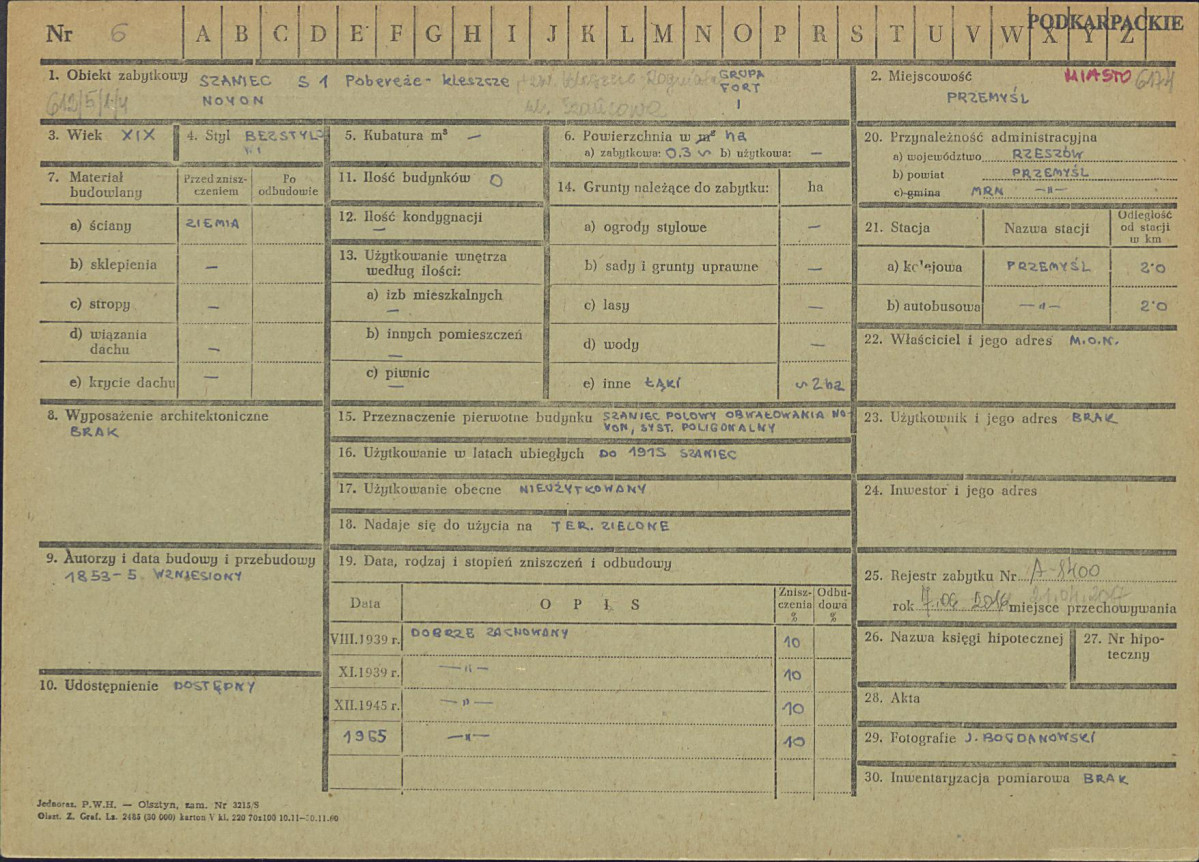 Nr 6 A B C D E F G H I J K L M N O P R S T U V W X Y Z PODKARPACKIE
1. Obiekt zabytkowy SZANIEC S 1 Pobereże - kleszcze GRUPA FORT I
NOYON
ul. Szańcowa
2. Miejscowość MIASTO 6174
PRZEMYŚL
3. Wiek XIX
4. Styl BEZSTYL-
5. Kubatura m³ —
6. Powierzchnia w m² ha
a) zabytkowa: 0.3 ~ b) użytkowa: —
7. Materiał budowlany
Przed zniszczeniem
Po odbudowie
a) ściany ZIEMIA
b) sklepienia —
c) stropy —
d) wiązania dachu —
e) krycie dachu —
8. Wyposażenie architektoniczne
BRAK
9. Autorzy i data budowy i przebudowy
1853-5 WZNIESIONY
10. Udostępnienie DOSTĘPNY
11. Ilość budynków 0
12. Ilość kondygnacji
—
13. Użytkowanie wnętrza według ilości:
a) izb mieszkalnych
—
b) innych pomieszczeń
—
c) piwnic
—
14. Grunty należące do zabytku: ha
a) ogrody stylowe —
b) sady i grunty uprawne —
c) lasy —
d) wody —
e) inne ŁĄKI ~ 2 ha
15. Przeznaczenie pierwotne budynku SZANIEC POLOWY OBWAŁOWANIA NO-
YON, SYST. POLIGONALNY
16. Użytkowanie w latach ubiegłych DO 1915 SZANIEC
17. Użytkowanie obecne NIEUŻYTKOWANY
18. Nadaje się do użycia na TER. ZIELONE
19. Data, rodzaj i stopień zniszczeń i odbudowy
Data OPIS Zniszczenia % Odbudowa %
VIII.1939 r. DOBRZE ZACHOWANY 10
XI.1939 r. — „ — 10
XII.1945 r. — „ — 10
1965 — „ — 10
20. Przynależność administracyjna
a) województwo RZESZÓW
b) powiat PRZEMYŚL
c) gmina MRN — „ —
21. Stacja Nazwa stacji Odległość od stacji w km
a) kolejowa PRZEMYŚL 2·0
b) autobusowa — „ — 2·0
22. Właściciel i jego adres M.O.N.
23. Użytkownik i jego adres BRAK
24. Inwestor i jego adres
25. Rejestr zabytku Nr A-8400
rok 7.06 2016 miejsce przechowywania
26. Nazwa księgi hipotecznej
27. Nr hipoteczny
28. Akta
29. Fotografie J. BOGDANOWSKI
30. Inwentaryzacja pomiarowa BRAK
Jednoraz. P.W.H. — Olsztyn, zam. Nr 3215/S
Olszt. Z. Graf. Lz. 2485 (30 000) karton V kl. 220 70x100 10.11—30.11.60